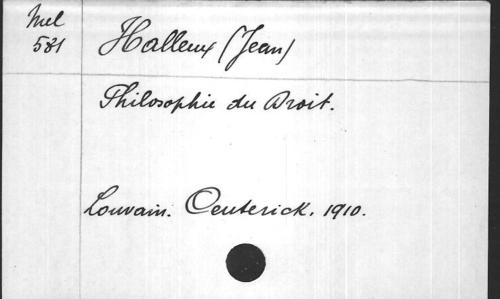 Mel
581
Halleux (Jean)
Philosophie du Droit.
Louvain. Ceuterick. 1910.